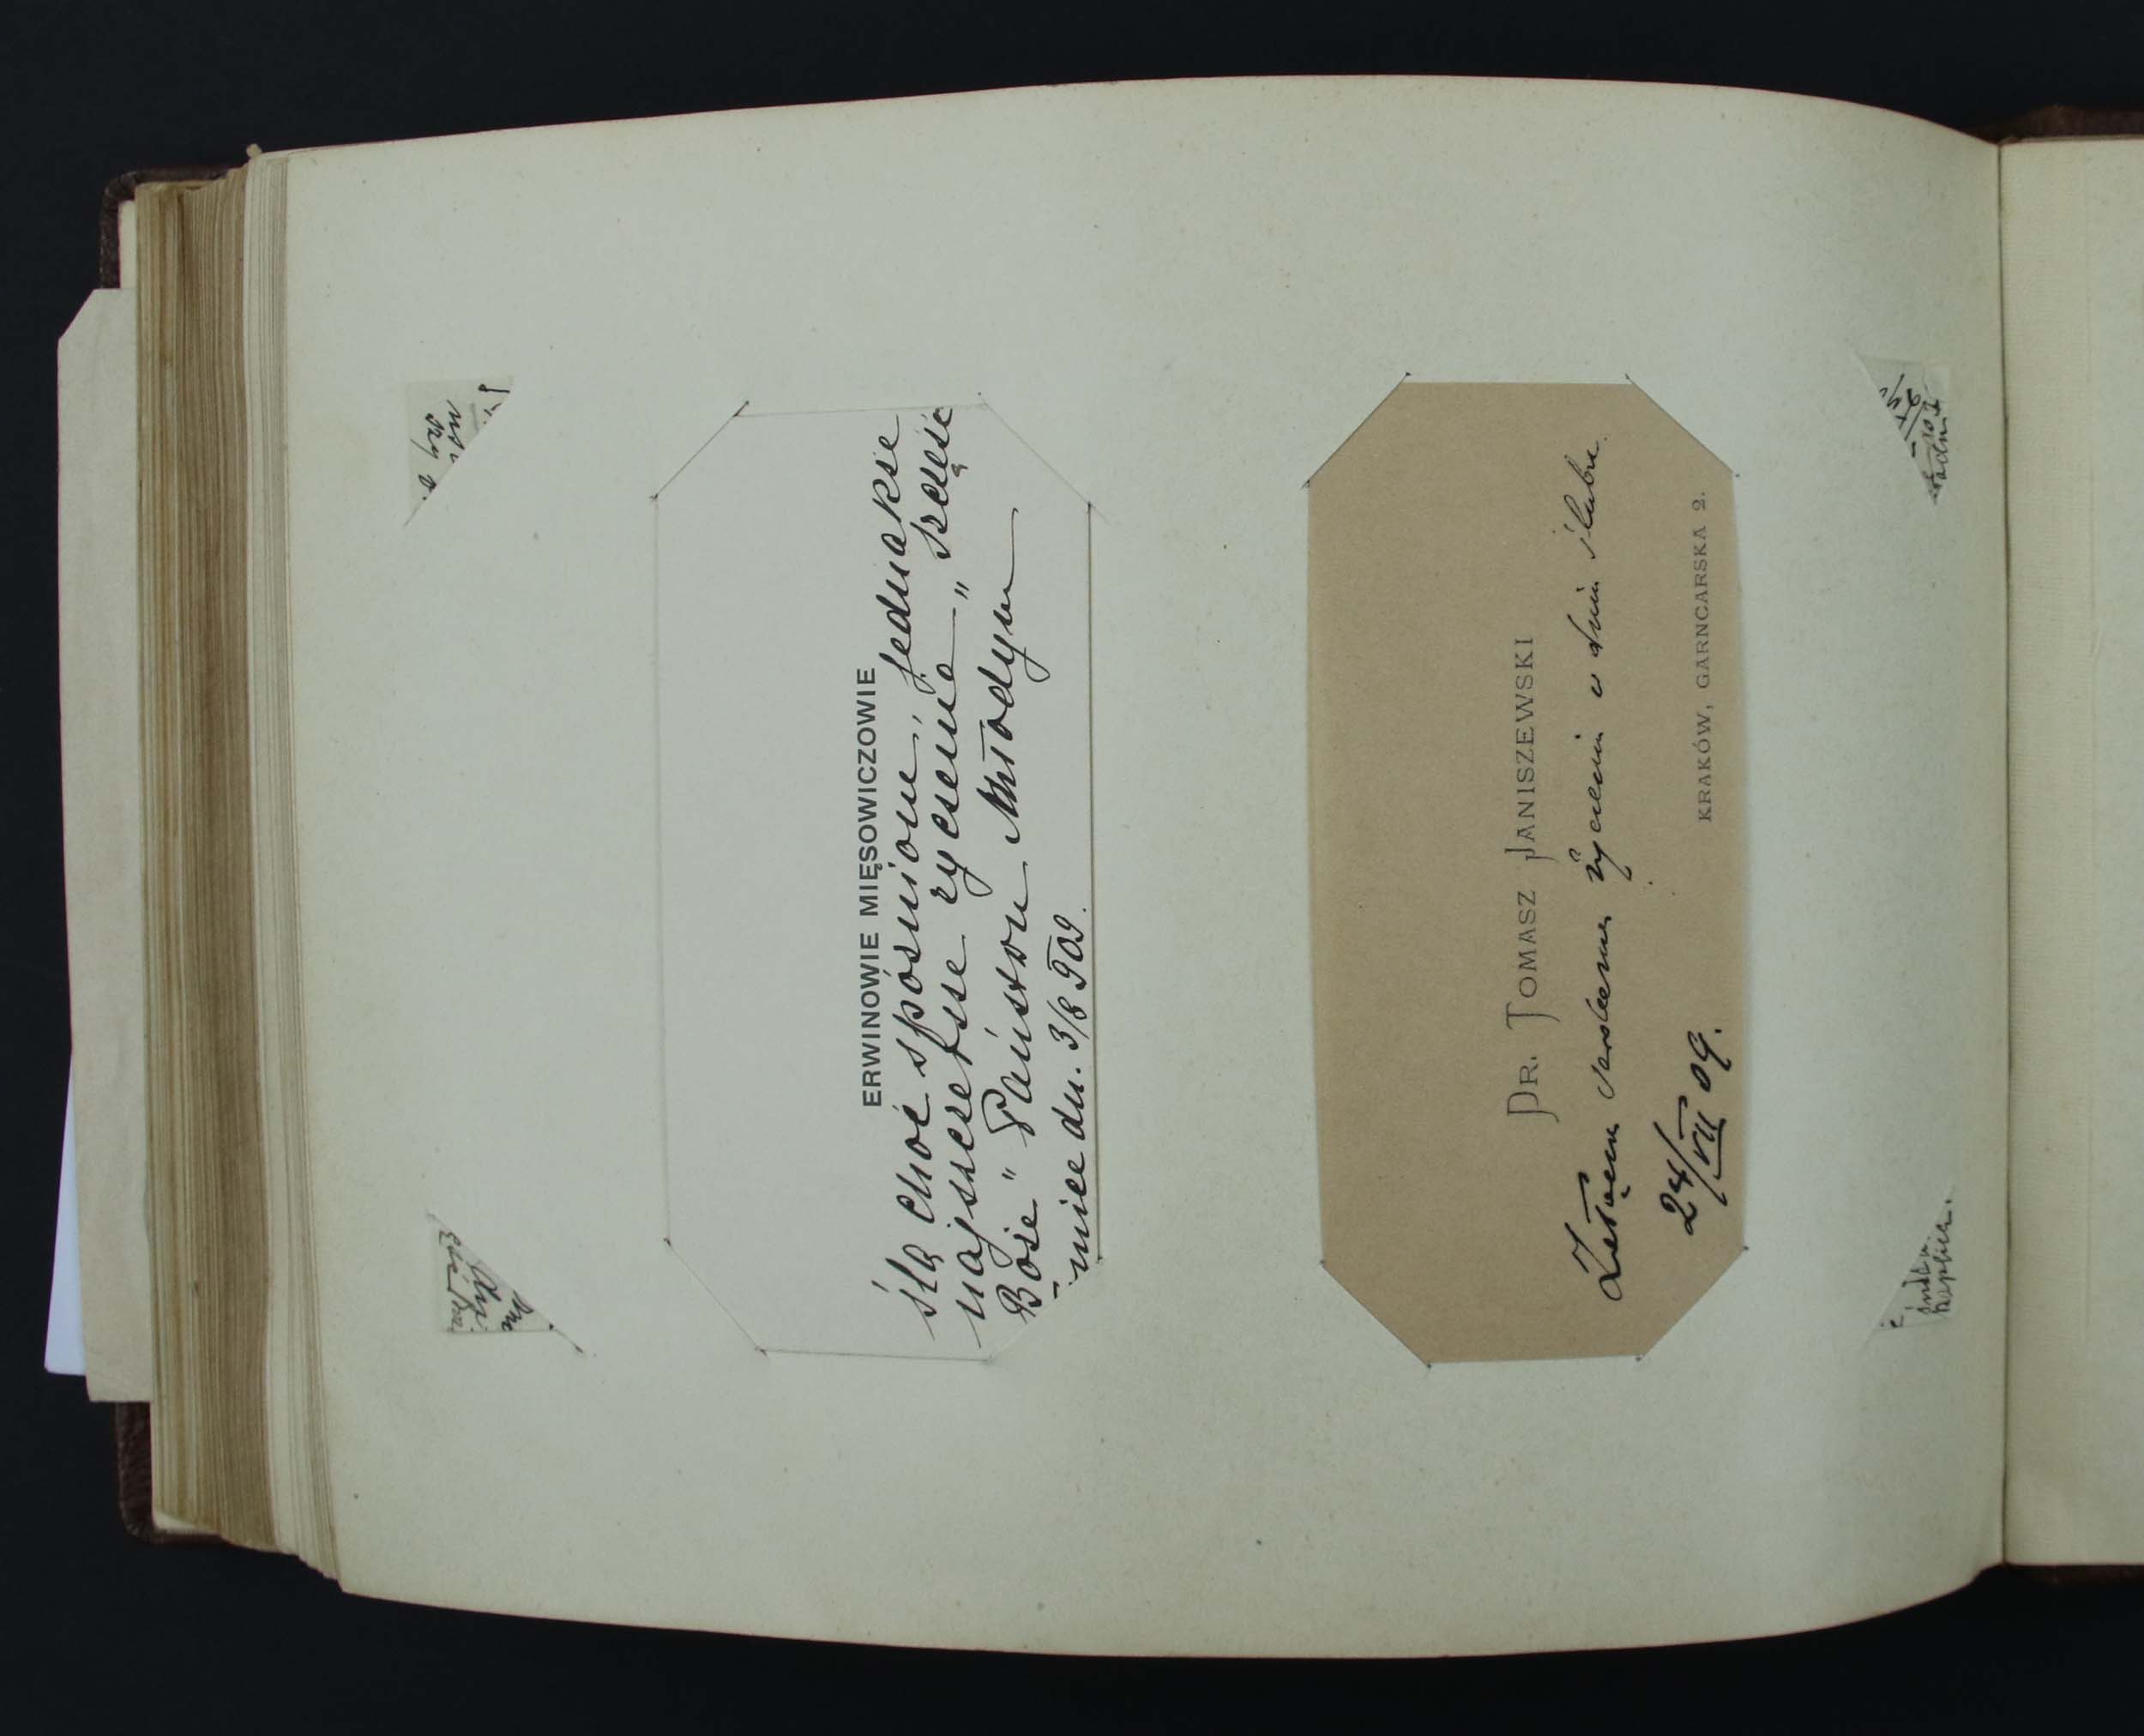 ERWINOWIE MIĘSOWICZOWIE
ślą choć spóźnione, jednakże
najszczersze życzenia „Szczęść
Boże" Państwu Młodym
dn. 3/8 909.
DR. TOMASZ JANISZEWSKI
serdeczne życzenia w dniu ślubu.
24/VII 09.
KRAKÓW, GARNCARSKA 2.